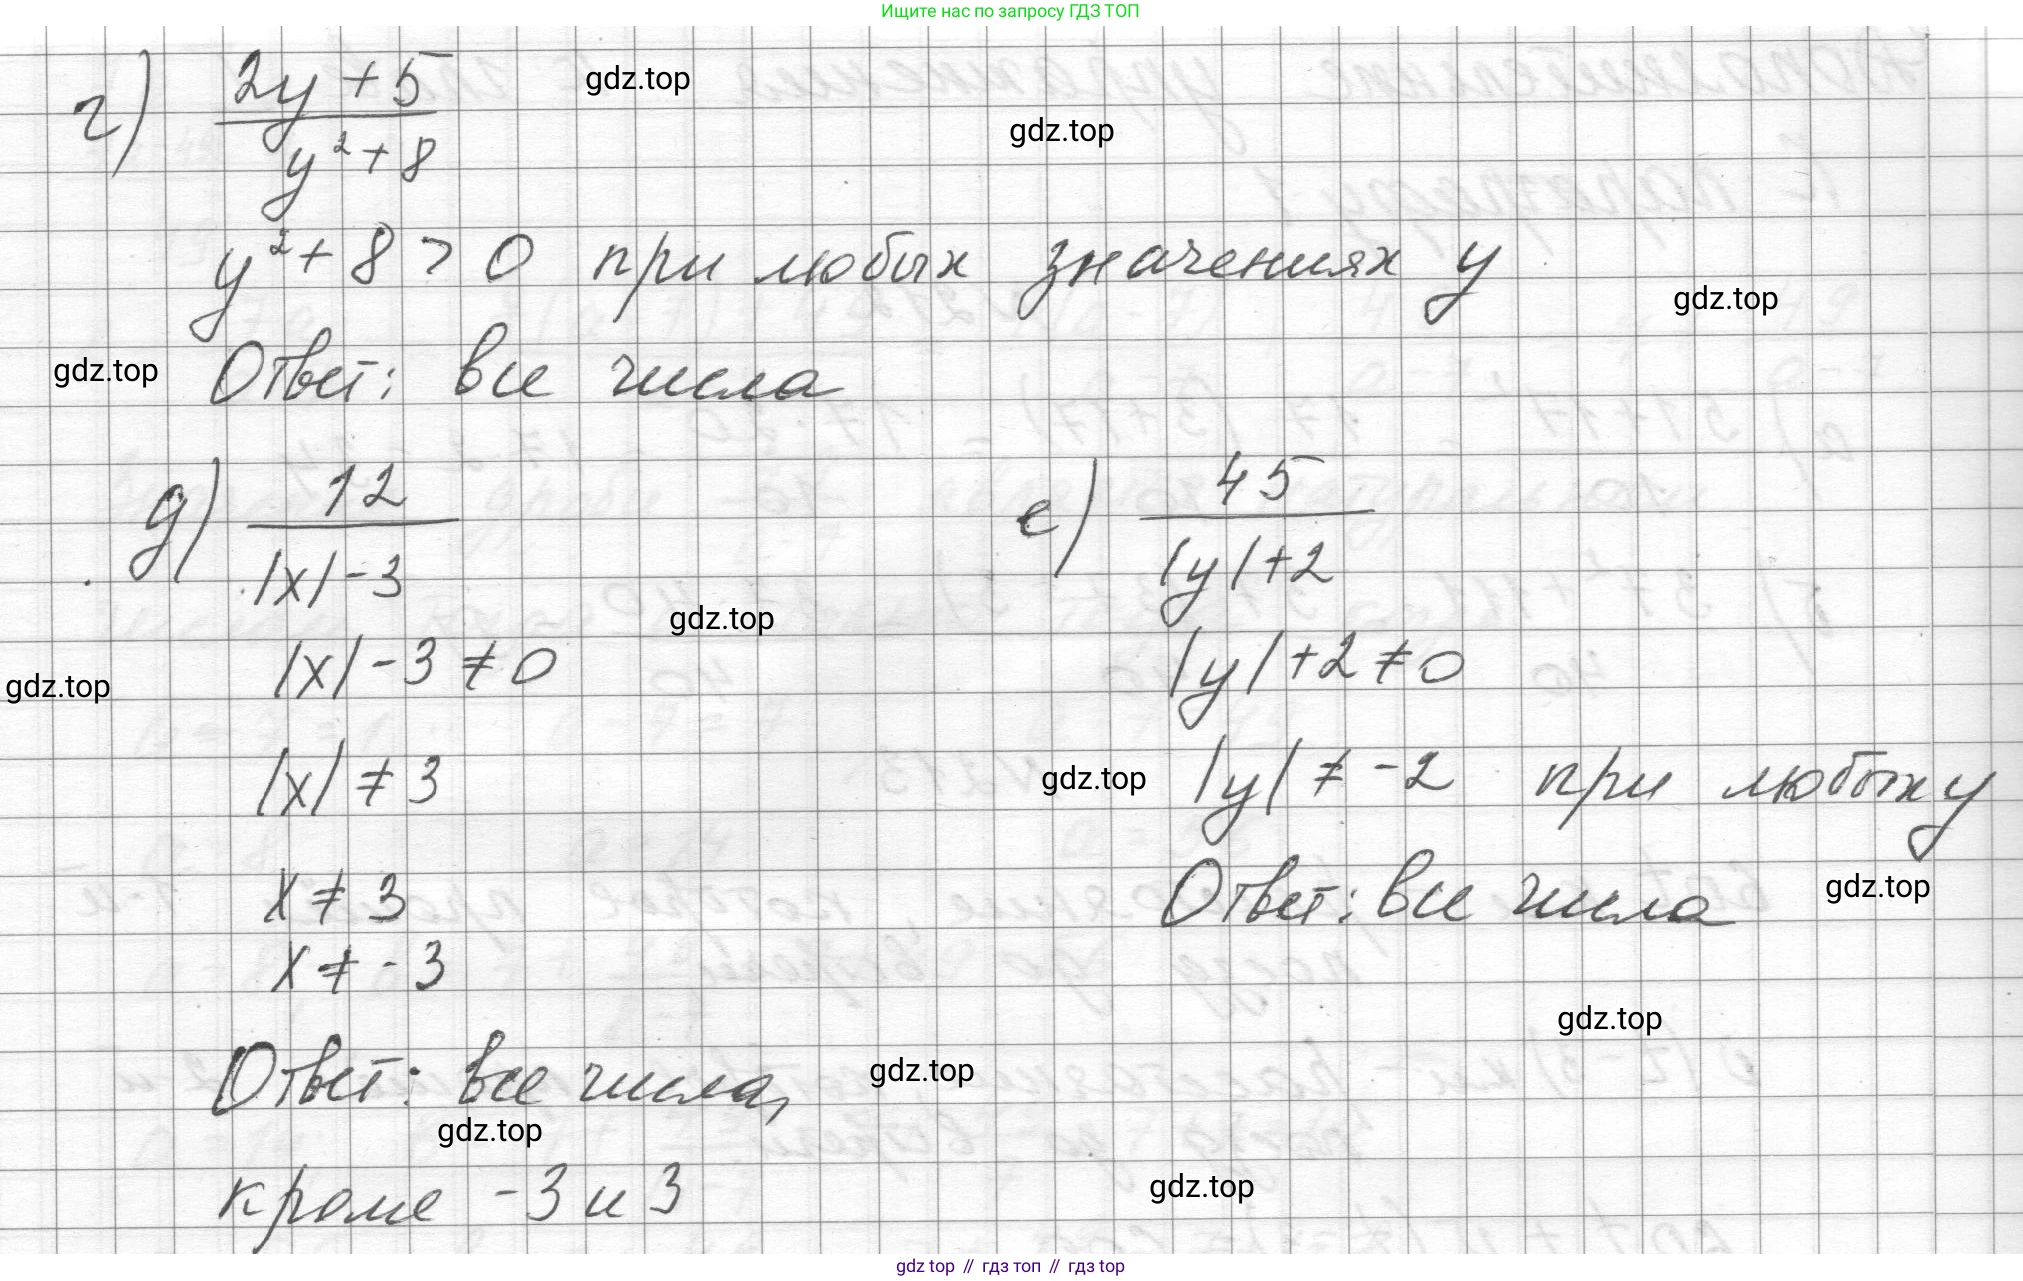 Ищите нас по запросу ГДЗ ТОП
г) (2y + 5)/(y² + 8)
gdz.top
gdz.top
y² + 8 > 0 при любых значениях y
gdz.top
gdz.top
Ответ: все числа
д) 12/(|x| - 3)
е) 45/(|y| + 2)
gdz.top
|x| - 3 ≠ 0
|y| + 2 ≠ 0
gdz.top
|x| ≠ 3
gdz.top
|y| ≠ -2 при любых y
x ≠ 3
Ответ: все числа
gdz.top
x ≠ -3
gdz.top
Ответ: все числа,
gdz.top
gdz.top
кроме -3 и 3
gdz.top
gdz top // гдз топ // гдз top